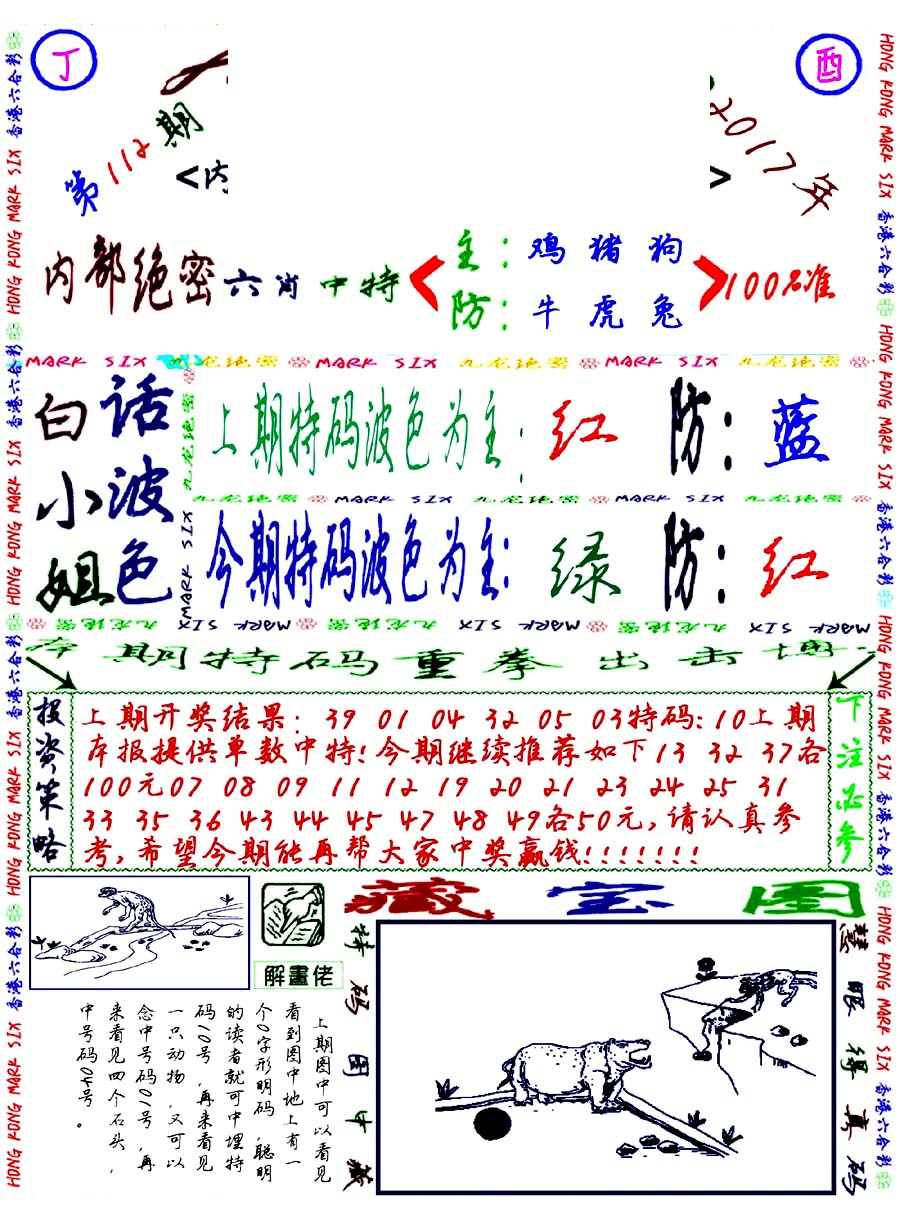 丁
酉
第112期
2017年
<内
>
内部绝密六肖中特
主：鸡 猪 狗
防：牛 虎 兔
100%准
MARK SIX 九龙绝密 MARK SIX 九龙绝密 MARK SIX 九龙绝密
白小姐
话波色
上期特码波色为主：红 防：蓝
九龙绝密 MARK SIX 九龙绝密 MARK SIX 九龙绝密
今期特码波色为主：绿 防：红
九龙绝密 MARK SIX 九龙绝密 MARK SIX 九龙绝密 MARK SIX
九龙绝密
MARK SIX
本期特码重拳出击博
投资策略
上期开奖结果：39 01 04 32 05 03特码：10上期
本报提供单数中特！今期继续推荐如下13 32 37各
100元07 08 09 11 12 19 20 21 23 24 25 31
33 35 36 43 44 45 47 48 49各50元，请认真参
考，希望今期能再帮大家中奖赢钱！！！！！！！
下注必参
解畫佬
藏宝图
上期图中可以看见
看到图中地上有一
个0字形明码，聪明
的读者就可中埋特
码10号，再来看见
一只动物，又可以
念中号码01号，再
来看见四个石头，
中号码04号。
特码图中藏
慧眼得真码
香港六合彩 HONG KONG MARK SIX 香港六合彩 HONG KONG MARK SIX 香港六合彩 HONG KONG MARK SIX 香港六合彩 HONG KONG MARK SIX
HONG KONG MARK SIX 香港六合彩 HONG KONG MARK SIX 香港六合彩 HONG KONG MARK SIX 香港六合彩 HONG KONG MARK SIX 香港六合彩